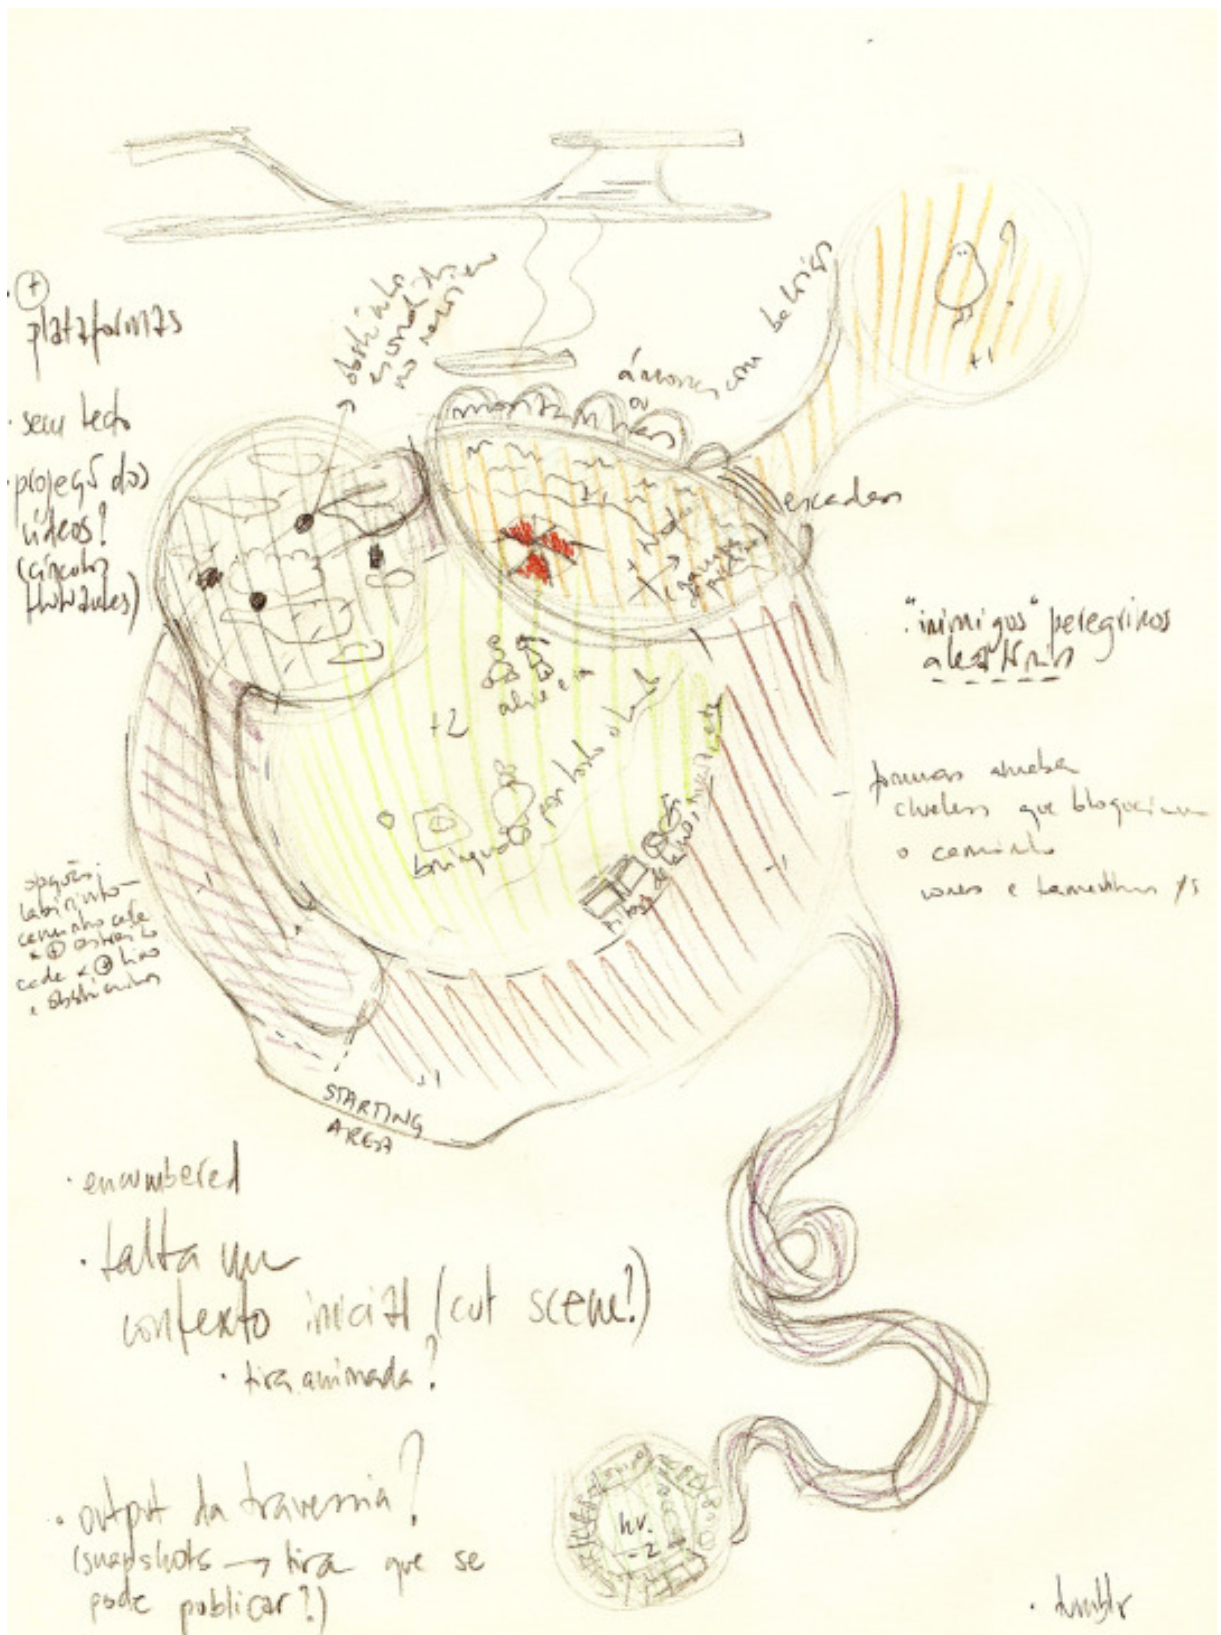 +
plataformas
· sem tecto
projeção dos
vídeos?
(círculos
flutuantes)
obstáculos
escondidos
no
árvores com
ou
montanhas
?
+1
escadas
X →
"inimigos" peregrinos
aleatórios
+2
aldeia
brinquedos por todo o lado
formas ameba
que bloqueiam
o caminho
cores e tamanhos
-1
-1
opções:
labirinto—
caminho cada
x + estreito
cada x +
obstáculos
+1
STARTING
AREA
· encumbered
· falta um
contexto inicial (cut scene?)
· tira animada?
· output da travessia?
(snapshots → tira que se
pode publicar?)
nv.
-2
· tumblr